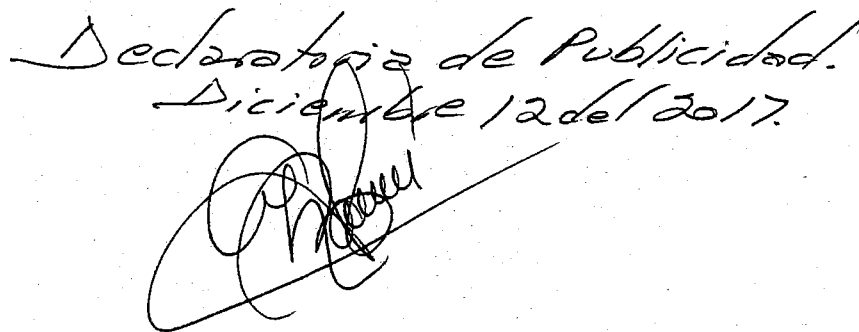 Declaratoria de Publicidad.
Diciembre 12 del 2017.